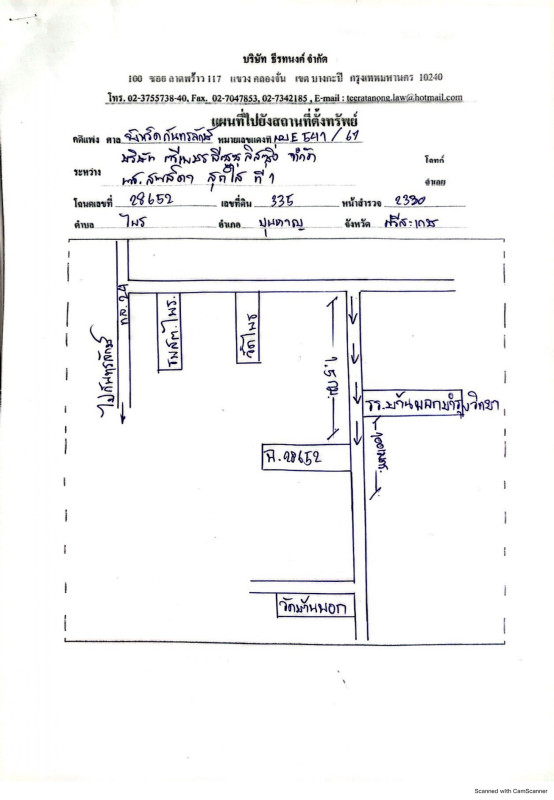 บริษัท ธีรทนงค์ จำกัด
100 ซอย ลาดพร้าว 117 แขวง คลองจั่น เขต บางกะปิ กรุงเทพมหานคร 10240
โทร. 02-3755738-40, Fax. 02-7047853, 02-7342185 , E-mail : teeratanong.law@hotmail.com
แผนที่ไปยังสถานที่ตั้งทรัพย์
คดีแพ่ง ศาล จังหวัดกันทรลักษ์ หมายเลขแดงที่ ผบE 541 / 67
บริษัท ศรีเพชร ลิสซิ่ง จำกัด โจทก์
ระหว่าง
สุดใส ที่ 1 จำเลย
โฉนดเลขที่ 28652 เลขที่ดิน 335 หน้าสำรวจ 2330
ตำบล ไพร อำเภอ ขุนหาญ จังหวัด ศรีสะเกษ
ทล.24
ไปกันทรลักษ์
รพสต.ไพร.
วัดไพร
1.5 กม.
รร.บ้านนอกบำรุงวิทยา
ฉ.28652
วัดบ้านนอก
Scanned with CamScanner